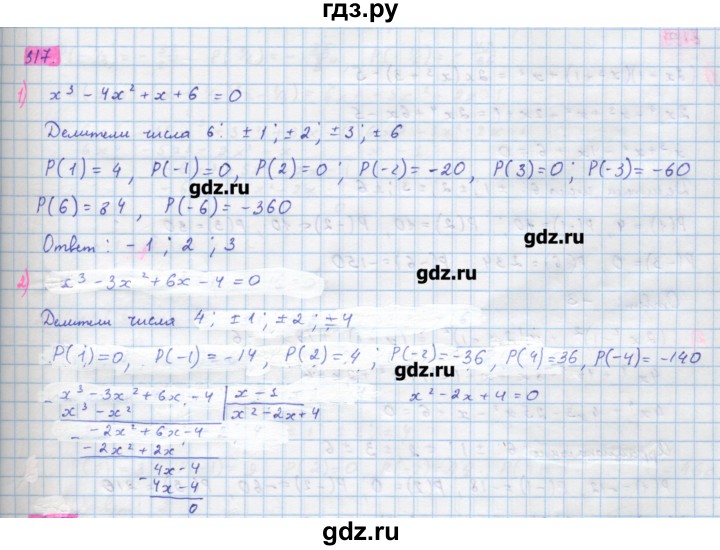 гдз.ру
317.
1) x³ - 4x² + x + 6 = 0
Делители числа 6: ±1; ±2; ±3; ±6
P(1) = 4, P(-1) = 0, P(2) = 0; P(-2) = -20, P(3) = 0; P(-3) = -60
gdz.ru
P(6) = 84, P(-6) = -360
gdz.ru
Ответ: -1; 2; 3
gdz.ru
2) x³ - 3x² + 6x - 4 = 0
Делители числа 4; ±1; ±2; ±4
gdz.ru
P(1) = 0, P(-1) = -14, P(2) = 4; P(-2) = -36, P(4) = 36, P(-4) = -140
gdz.ru
- x³ - 3x² + 6x - 4 | x - 1
x² - 2x + 4 = 0
x³ - x² | x² - 2x + 4
- -2x² + 6x - 4
-2x² + 2x
- 4x - 4
4x - 4
0
gdz.ru
gdz.ru